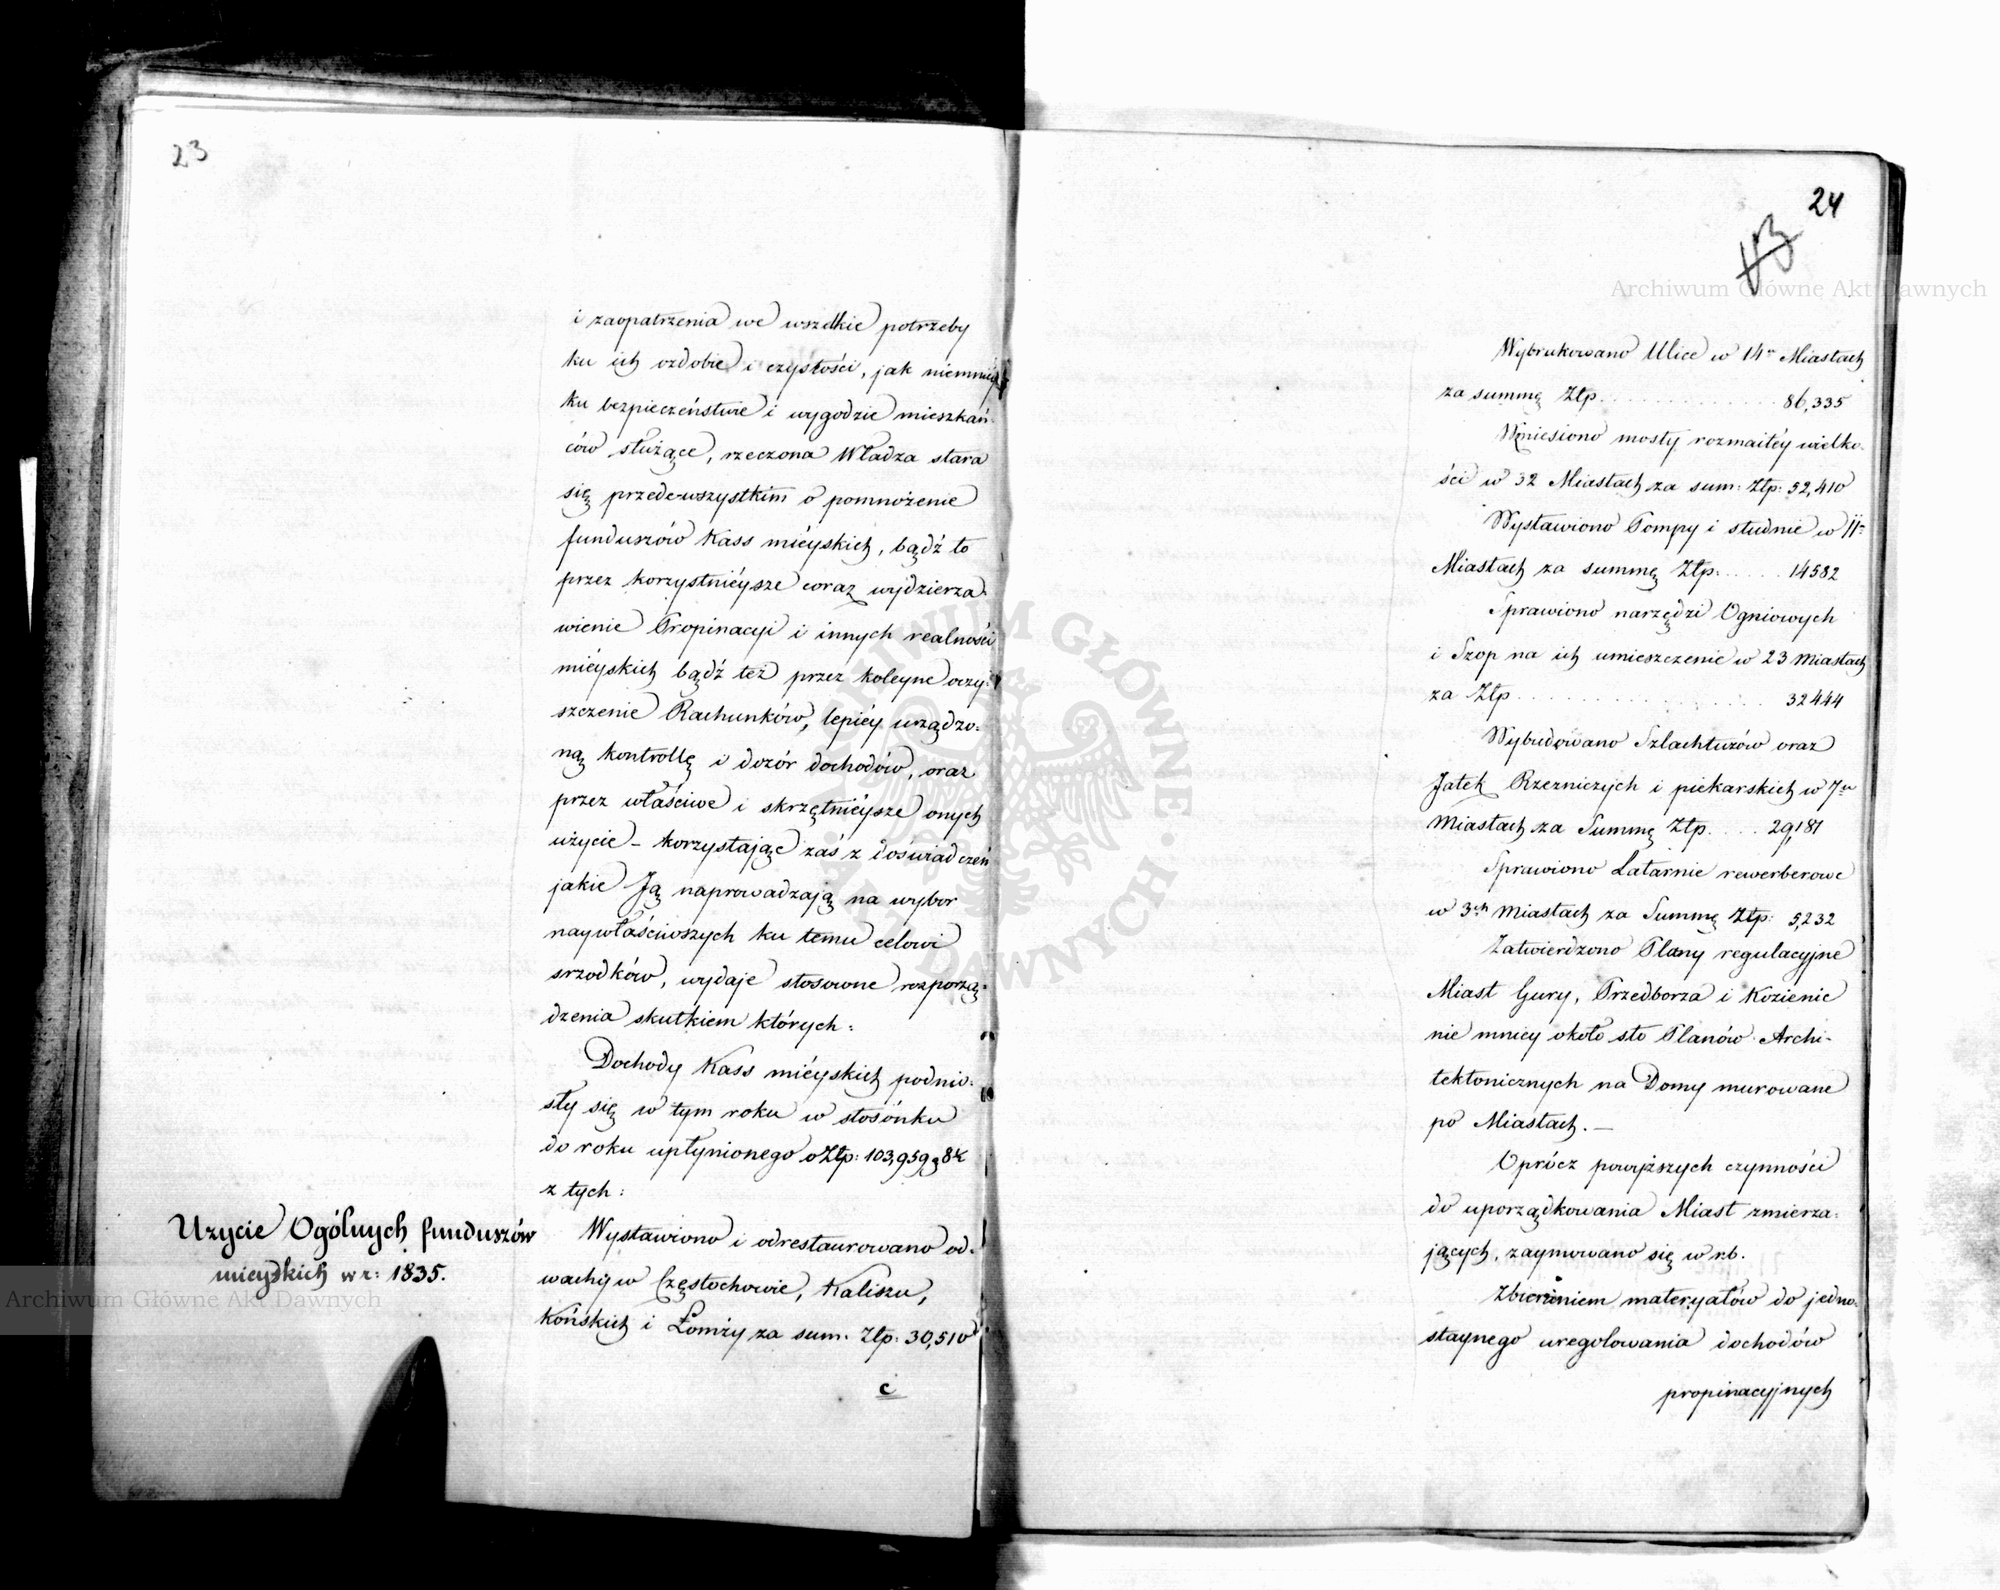 23
i zaopatrzenia we wszelkie potrzeby
ku ich ozdobie i czystości, jak niemniéy
ku bezpieczeństwie i wygodzie mieszkań-
ców służące, rzeczona Władza stara
się przedewszystkim o pomnożenie
funduszów Kass mieyskich, bądź to
przez korzystnieysze coraz wydzierza-
wienie Propinacyi i innych realności
mieyskich bądź też przez koleyne oczy-
szczenie Rachunków, lepiéy urządzo-
ną kontrollę i dozór dochodów, oraz
przez właściwe i skrzętnieysze onych
użycie – korzystając zaś z doświadczeń
jakie Ją naprowadzają na wybor
naywłaściwszych ku temu celowi
srzodków, wydaje stosowne rozporzą-
dzenia skutkiem których:
Dochody Kass mieyskich podnio-
sły się w tym roku w stosónku
do roku upłynionego o Złp: 103,959 g 8½
z tych:
Uzycie Ogólnych funduszów
mieyskich w r: 1835.
Wystawiono i odrestaurowano od-
wachy w Częstochowie, Kaliszu,
Końskich i Łomży za sum. Złp: 30,510
c
24
Wybrukowano Ulice w 14 Miastach
za summę Złp. . . . . . . . . . . . . 86,335
Wzniesiono mosty rozmaitéy wielko-
ści w 32 Miastach za sum: Złp: 52,410
Wystawiono Pompy i studnie w 11
Miastach za summę Złp. . . . . . 14582
Sprawiono narzędzi Ogniowych
i Szop na ich umieszczenie w 23 Miastach
za Złp . . . . . . . . . . . . . . . 32444
Wybudowano Szlachtuzów oraz
Jatek Rzezniczych i piekarskich w 7u
Miastach za Summę Złp. . . . . 29,181
Sprawiono Latarnie rewerberowe
w 3ch Miastach za Summę Złp: 5,232
Zatwierdzono Plany regulacyjne
Miast Gury, Przedborza i Kozienic
nie mniey około sto Planów Archi-
tektonicznych na Domy murowane
po Miastach. —
Oprócz powyższych czynności
do uporządkowania Miast zmierza-
jących, zaymowano się w r.b.
Zbieraniem materyałów do jedno-
staynego uregolowania dochodów
propinacyjnych
Archiwum Główne Akt Dawnych
Archiwum Główne Akt Dawnych
ARCHIWUM GŁÓWNE AKT DAWNYCH